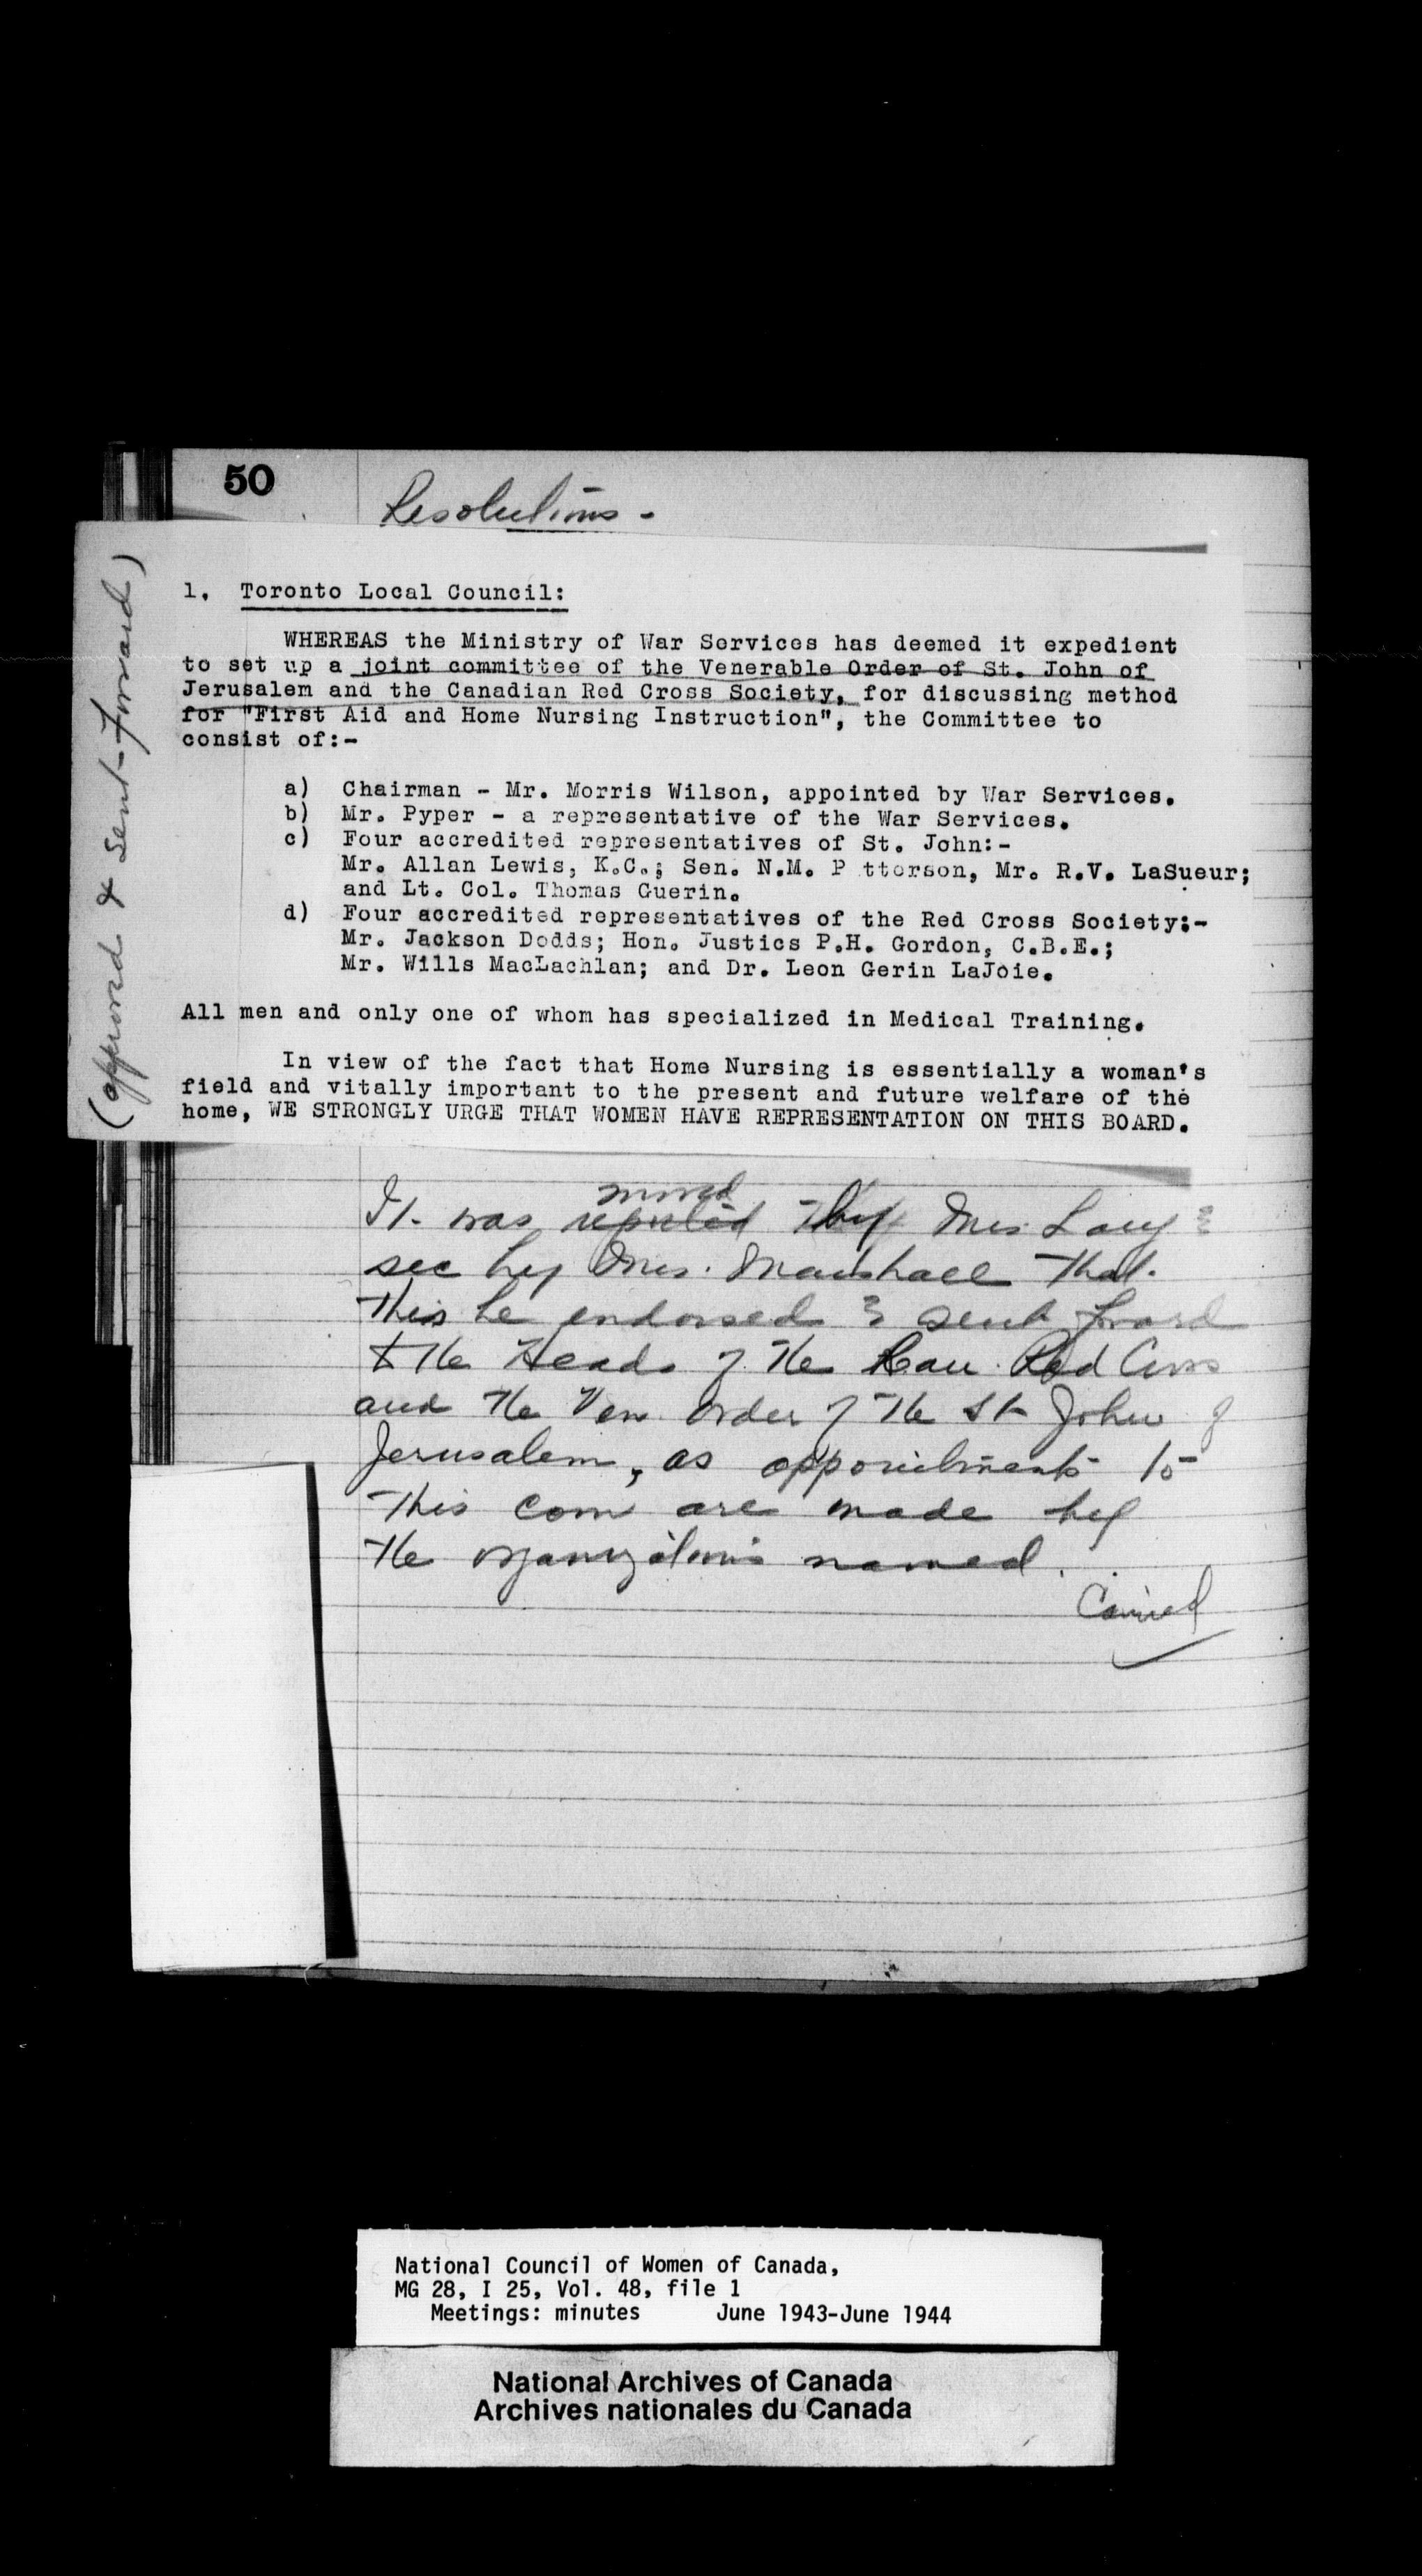 50
Resolutions -
(approved & sent forward)
1. Toronto Local Council:
WHEREAS the Ministry of War Services has deemed it expedient
to set up a joint committee of the Venerable Order of St. John of
Jerusalem and the Canadian Red Cross Society, for discussing method
for "First Aid and Home Nursing Instruction", the Committee to
consist of:-
a) Chairman - Mr. Morris Wilson, appointed by War Services.
b) Mr. Pyper - a representative of the War Services.
c) Four accredited representatives of St. John:-
Mr. Allan Lewis, K.C.; Sen. N.M. P tterson, Mr. R.V. LaSueur;
and Lt. Col. Thomas Guerin.
d) Four accredited representatives of the Red Cross Society:-
Mr. Jackson Dodds; Hon. Justics P.H. Gordon, C.B.E.;
Mr. Wills MacLachlan; and Dr. Leon Gerin LaJoie.
All men and only one of whom has specialized in Medical Training.
In view of the fact that Home Nursing is essentially a woman's
field and vitally important to the present and future welfare of the
home, WE STRONGLY URGE THAT WOMEN HAVE REPRESENTATION ON THIS BOARD.
moved
It was by Mrs. &
sec by Mrs. Marshall that
this be endorsed & sent forward
to the Heads of the Can. Red Cross
and the Ven Order of the St John of
Jerusalem, as appointments to
this com are made by
the organizations named.
Carried
National Council of Women of Canada,
MG 28, I 25, Vol. 48, file 1
Meetings: minutes June 1943-June 1944
National Archives of Canada
Archives nationales du Canada